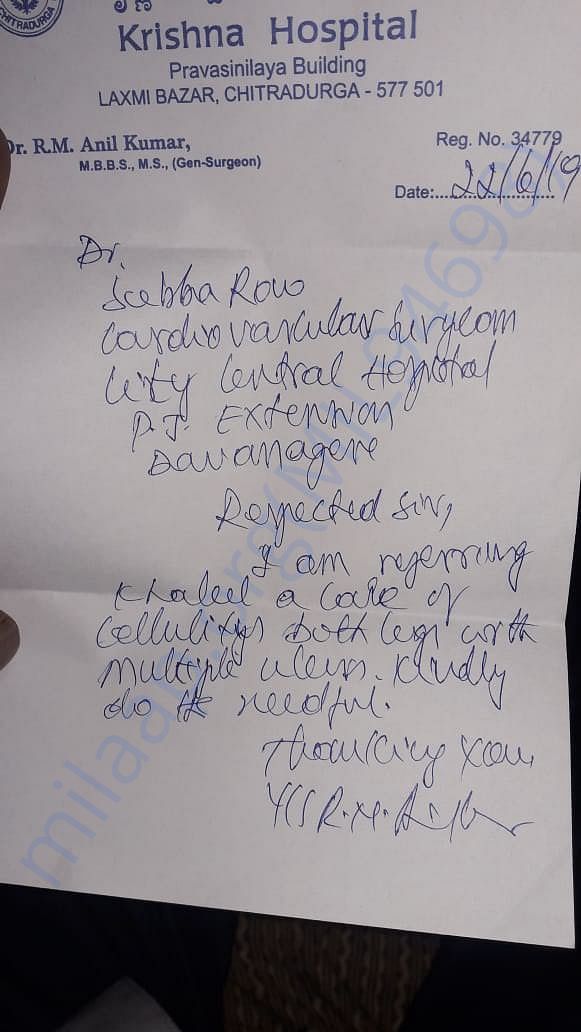 CHITRADURGA
Krishna Hospital
Pravasinilaya Building
LAXMI BAZAR, CHITRADURGA - 577 501
Dr. R.M. Anil Kumar,
M.B.B.S., M.S., (Gen-Surgeon)
Reg. No. 34779
Date:....22/6/19
Dr.
Subba Row
Cardiovascular Surgeon
City Central Hospital
P.J. Extension
Davanagere
Respected Sir,
I am referring
Khaleel a case of
Cellulitis both legs with
multiple ulcers. Kindly
do the needful.
Thanking you,